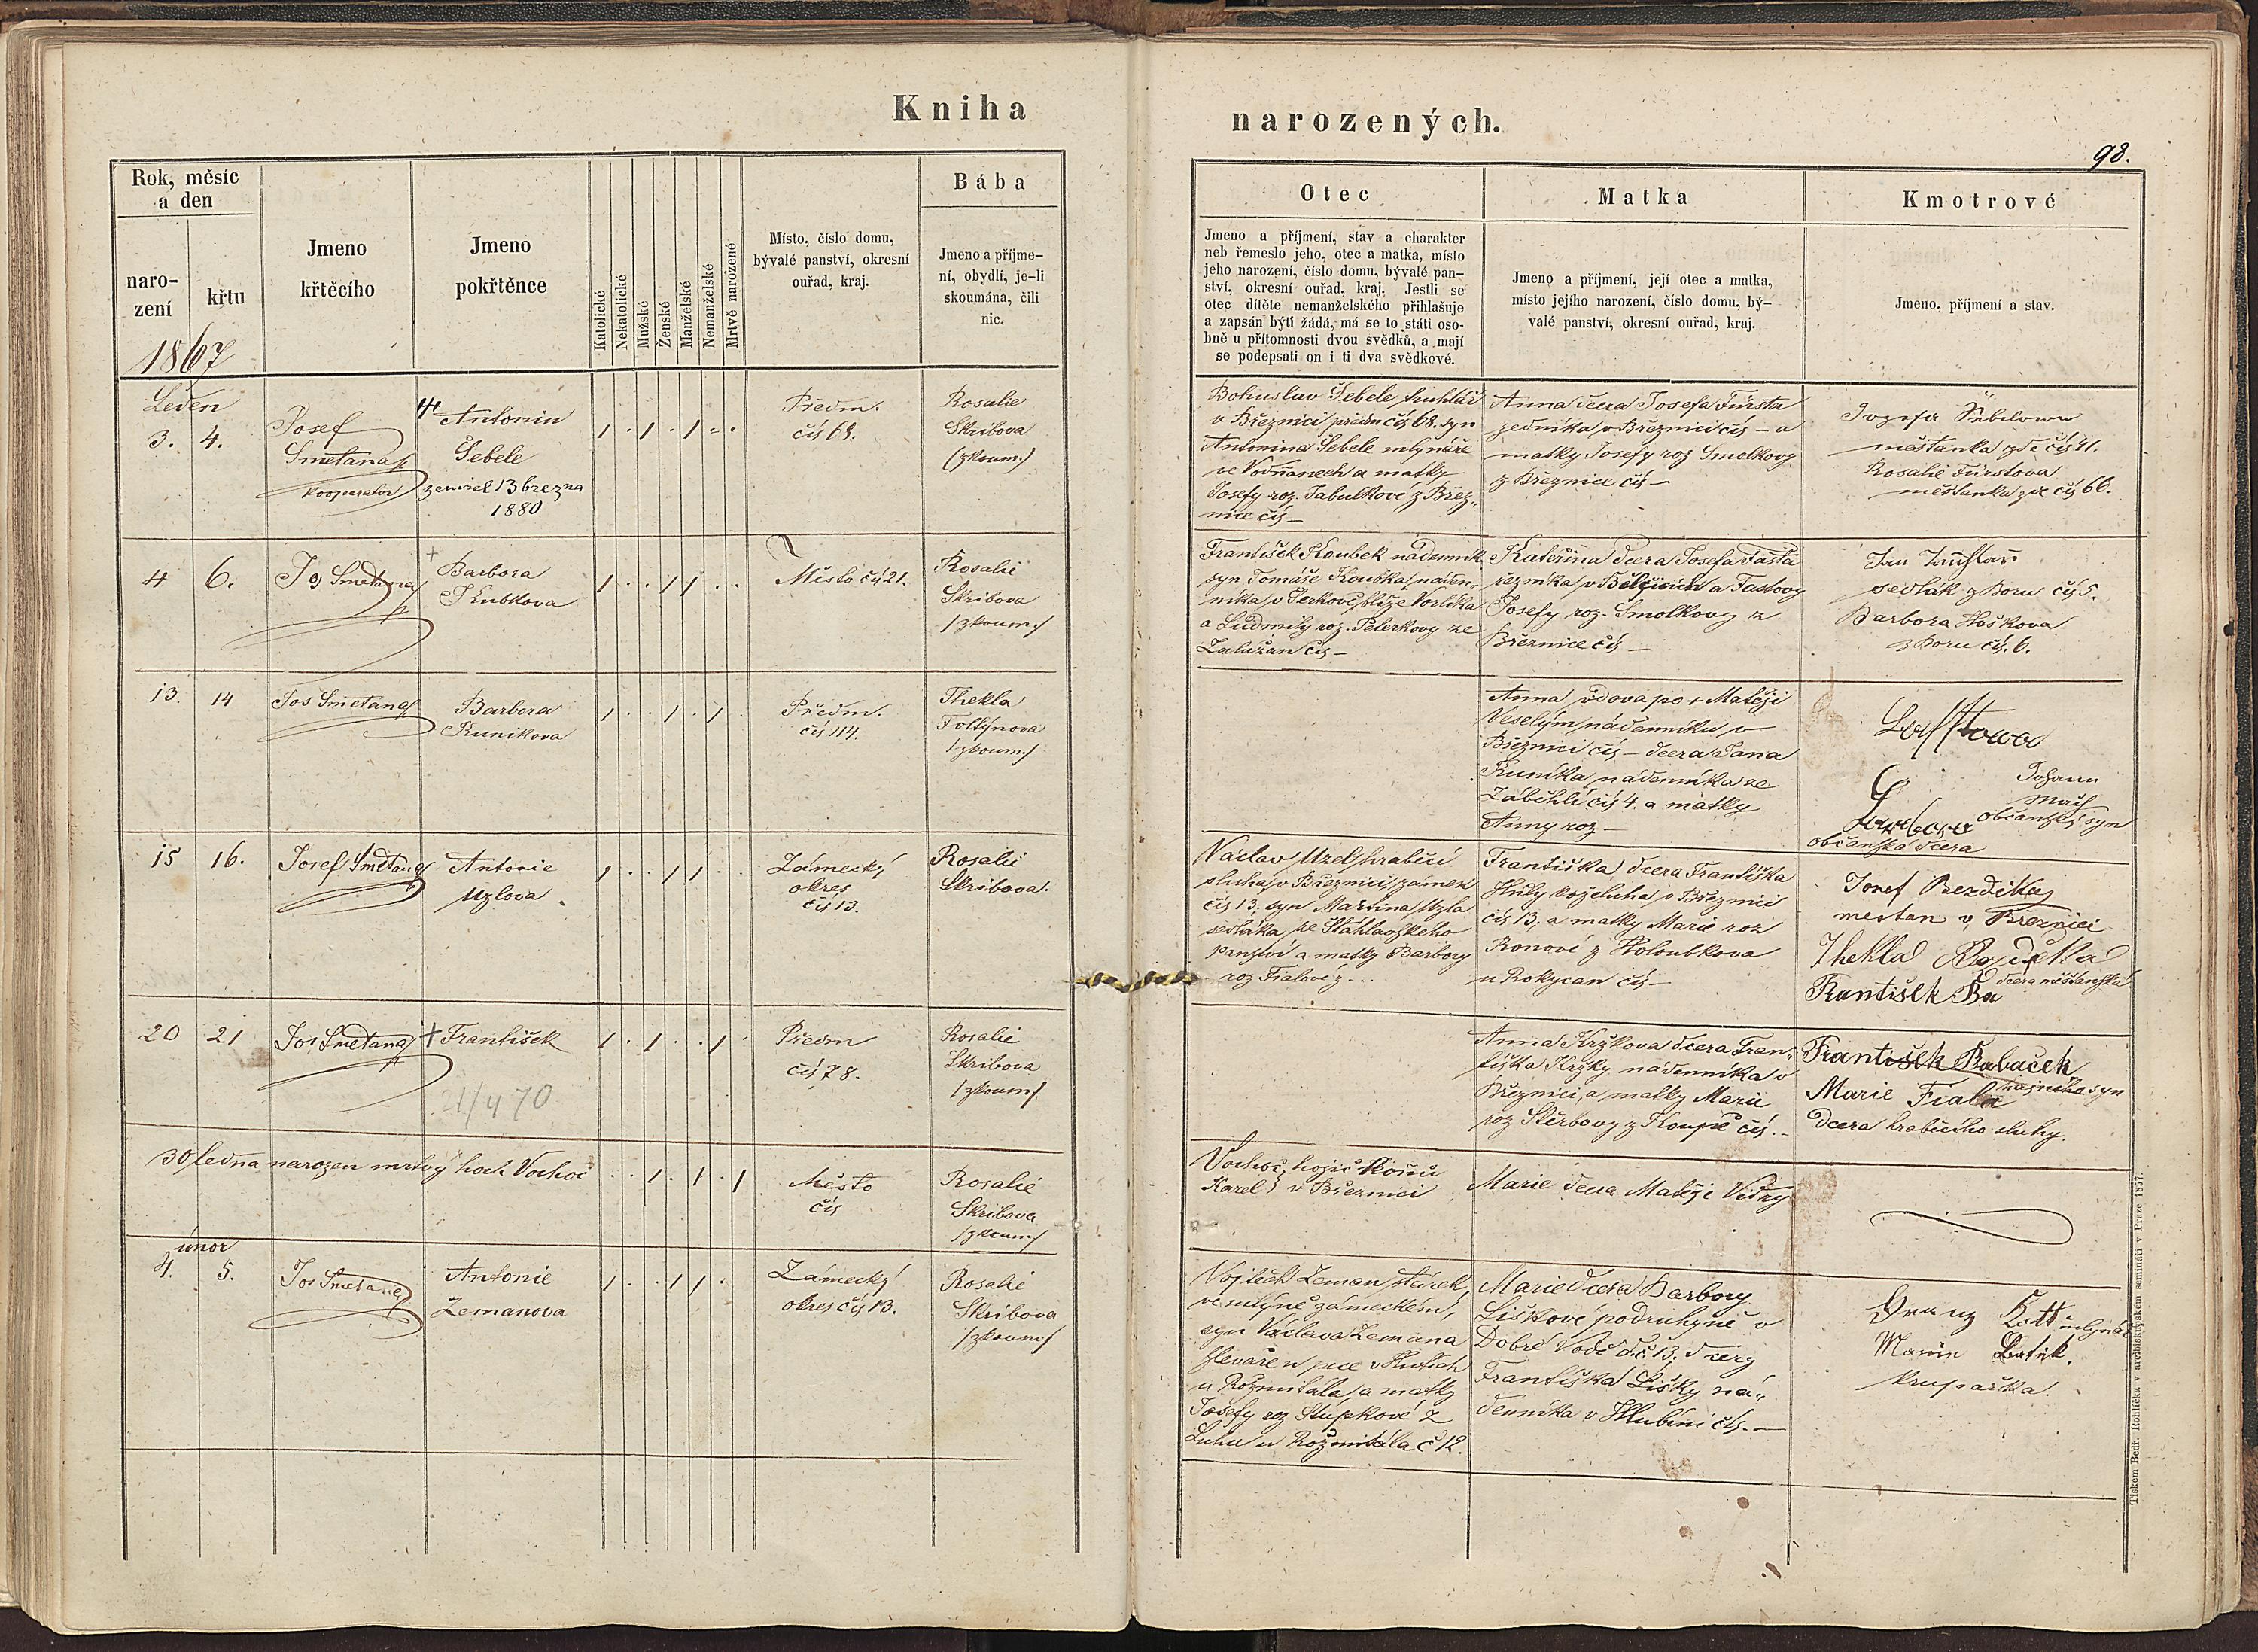 Kniha
narozených.
98.
Rok, měsíc
a den
naro-
zení
křtu
1867
Jmeno
křtěcího
Jmeno
pokřtěnce
Katolické
Nekatolické
Mužské
Ženské
Manželské
Nemanželské
Mrtvě narozené
Místo, číslo domu,
bývalé panství, okresní
ouřad, kraj.
Bába
Jmeno a příjme-
ní, obydlí, je-li
skoumána, čili
nic.
Otec
Jmeno a příjmení, stav a charakter
neb řemeslo jeho, otec a matka, místo
jeho narození, číslo domu, bývalé pan-
ství, okresní ouřad, kraj. Jestli se
otec dítěte nemanželského přihlašuje
a zapsán býti žádá, má se to státi oso-
bně u přítomnosti dvou svědků, a mají
se podepsati on i ti dva svědkové.
Matka
Jmeno a příjmení, její otec a matka,
místo jejího narození, číslo domu, bý-
valé panství, okresní ouřad, kraj.
Kmotrové
Jmeno, příjmení a stav.
Leden
3. 4.
Josef
Smetana
kooperator
Antonin
Šebele
zemřel 13 března
1880
Předm.
čís 68.
Rosalie
Skribova
(zkoum.)
Bohuslav Šebele truhlář
v Březnici předm čís 68. syn
Antonina Šebele mlynáře
ve Vodňanech a matky
Josefy roz. Tabulkové z Břez„
nice čís –
Anna dcera Josefa Fürsta
jedníka v Březnici čís – a
matky Josefy roz Smolkovy
z Březnice čís –
Jozefa Šebelowa
měšťanka zde čís 41.
Rosalie Fürstova
měšťanka zde čís 66.
4 6.
Jos Smetana
Barbora
Koubkova
Město čís 21.
Rosalie
Skribova
/zkoum/
František Koubek nádenník
syn Tomáše Koubka naden„
níka v blíže Vorlíka
a Ludmily roz. Peterkovy ze
Zalužan čís –
Kateřina dcera Josefa Fašta
řezníka v Bělčicích a Faštovy
Josefy roz. Smolkovy z
Březnice čís –
sedlák z Boru čís 5.
Barbora Hoškova
z Boru čís. 6.
13. 14
Jos Smetana
Barbora
Kunikova
Předm.
čís 114.
Thekla
Foltýnova
/zkoum/
Anna vdova po + Matěji
Veselým nádenníku v
Březnici čís – dcera Jana
Kuníka nádenníka ze
Záběhlí čís 4. a matky
Anny roz –
Johann
občanský syn
Barbora
občanská dcera
15 16.
Josef Smetana
Antonie
Uzlova
Zámecký
okres
čís 13.
Rosalie
Skribova.
Václav Uzel hraběcí
sluha v Březnici zámek
čís 13. syn Martina Uzla
sedláka ze Štáhlavského
panství a matky Barbory
roz Fialové z...
Františka dcera Františka
Hůly koželuha v Březnici
čís 13, a matky Marie roz
Ronové z Holoubkova
u Rokycan čís –
Josef Bezděka
mestan v Breznici
Thekla
dcera měšťanská
František Ba
20 21
Jos Smetana
+ František
21/4 70
Předm
čís 78.
Rosalie
Skribova
/zkoum/
Anna Kržkova dcera Fran„
tiška Kržky nádenníka v
Březnici, a matky Marie
roz Štěrbovy z Koupě čís. –
František Babaček
hajného syn
Marie Fiala
dcera hraběcího sluhy.
30 ledna narozen mrtvý hoch Vochoč
Město
čís
Rosalie
Skribova
/zkoum/
Vochoč hojič koňů
Karel v Březnici
Marie dcera Matěje Vidry
únor
4. 5.
Jos Smetana
Antonie
Zemanova
Zámecký
okres čís 13.
Rosalie
Skribova
/zkoum/
Vojtěch Zeman stárek
ve mlýně zámeckém,
syn Václava Zemana
slevače u pece v Hutích
u Rožmitála, a matky
Josefy roz Stupkové z
Luhu u Rožmitála č 12.
Marie dcera Barbory
Liškové podruhyně v
Dobré Vodě č. 13, dcery
Františka Lišky ná„
denníka v Hlubíni čís. –
Franz Kott mlynář
Marie
krupařka.
Tiskem Bedř. Rohlíčka v arcibiskupském semináři v Praze 1857.